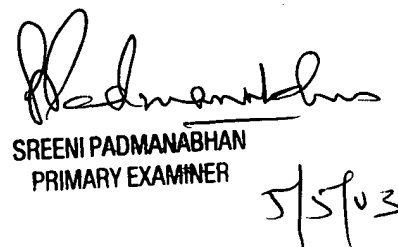 SPadmanabhan
SREENI PADMANABHAN
PRIMARY EXAMINER
5/5/03